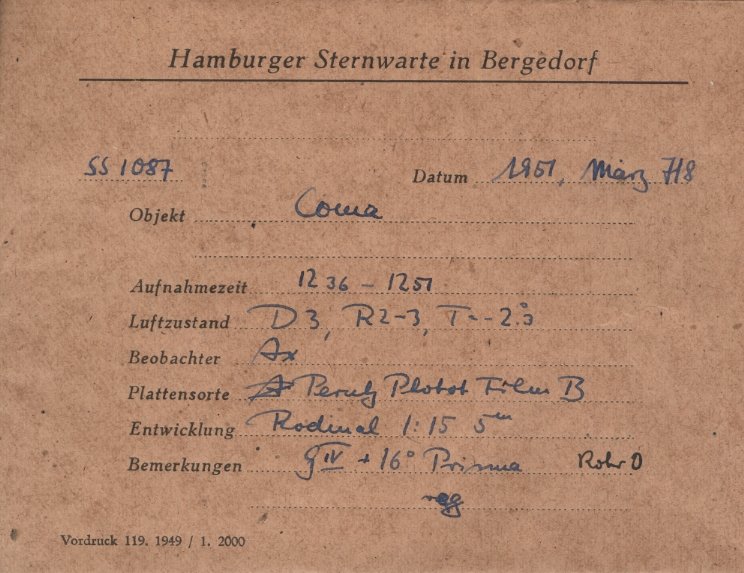 Hamburger Sternwarte in Bergedorf
SS 1087 Datum 1951, März 7/8
Objekt Coma
Aufnahmezeit 12 36 - 12 51
Luftzustand D 3, R 2-3, T = -2.°5
Beobachter Ax
Plattensorte Perutz Photot Film B
Entwicklung Rodinal 1:15 5m
Bemerkungen gIV + 16° Prisma Rohr O
Vordruck 119. 1949 / 1. 2000